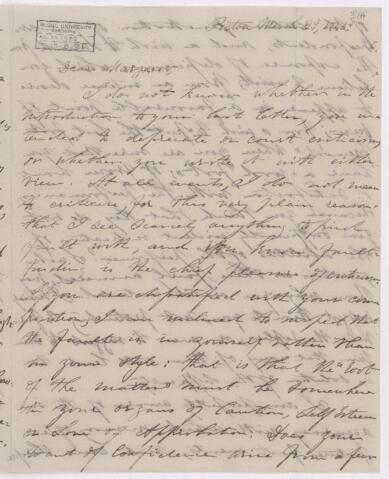 Boston March 29, 18
Dear Margaret
I do not know whether in the
introduction to your last letter, you in-
tended to deprecate or court criticism
or whether you wrote it with either
view. At all events, I do not mean
to criticise, for this very plain reason
that I see scarcely anything to find
fault with and you know fault
finding is the chief pleasure of criticism.
If you are dissatisfied with your com
position, I am inclined to suspect that
the fault is in yourself rather than
in your style: that is that the root
of the matter must be somewhere
in your organs of Caution, Self Esteem
or Love of Approbation. Does your
want of confidence arise from a fear